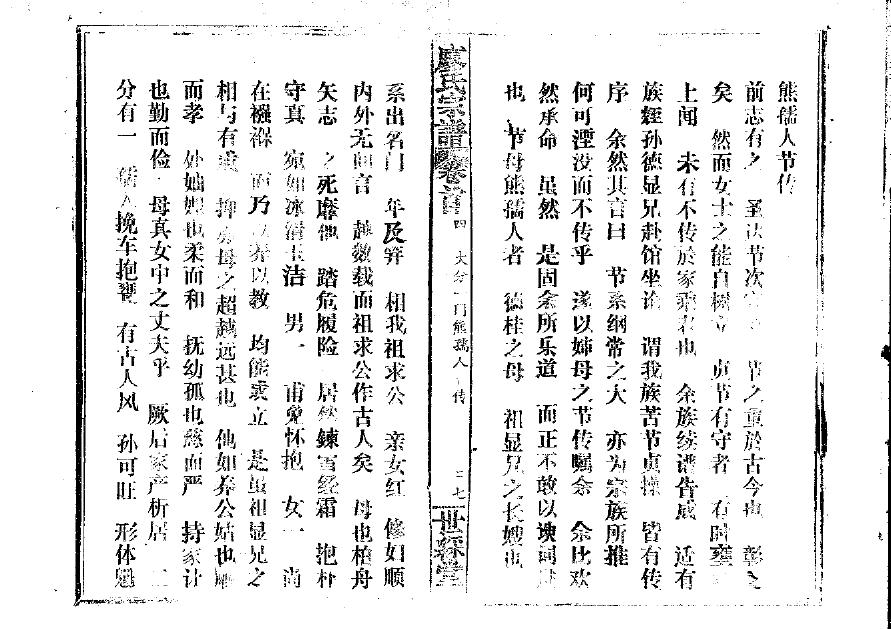 熊孺人节传
前志有之 圣达节次 节之重於古今也 彰
矣 然而女士之能自树立 贞节有守者 有时
上闻 未有不传於家乘者也 余族续谱告成 适有
族姪孙德显兄赴馆坐论 谓我族苦节贞操 皆有传
序 余然其言曰 节系纲常之大 亦为宗族所推
何可湮没而不传乎 遂以婶母之节传嘱余 余比欢
然承命 虽然 是固余所乐道 而正不敢以谀词
也 节母熊孺人者 德桂之母 祖显兄之长嫂也
卢氏宗谱 卷首 四 大分一门熊孺人 传 二七 世綵堂
系出名门 年及笄 相我祖求公 亲女红 修妇顺
内外无间言 越数载而祖求公作古人矣 母也柏舟
矢志 之死靡他 踏危履险 居然鍊雪经霜 抱朴
守真 宛如冰清玉洁 男一 甫免怀抱 女一 尚
在襁褓 而乃以养以教 均能成立 是虽祖显兄之
相与有成 抑亦母之超越远甚也 他如养公姑也
而孝 处妯娌也柔而和 抚幼孤也慈而严 持家计
也勤而俭 母真女中之丈夫乎 厥后家产析居 二
分有一 挽车抱甕 有古人风 孙可旺 形体魁